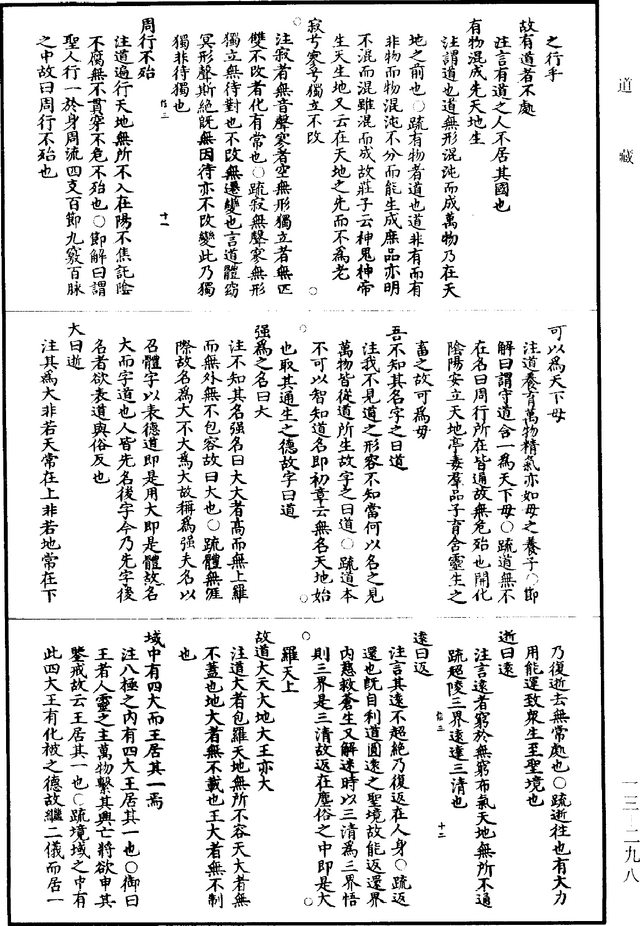 道藏
之行乎
故有道者不處
注言有道之人不居其國也
有物混成先天地生
注謂道也道無形混沌而成萬物乃在天
地之前也○疏有物者道也道非有而有
非物而物混沌不分而能生成庶品亦明
不混而混雖混而成故莊子云神鬼神帝
生天生地又云在天地之先而不為老
寂兮寥兮獨立不改
注寂者無音聲寥者空無形獨立者無匹
雙不改者化有常也○疏寂無聲寥無形
獨立無待對也不改無遷變也言道體窈
冥形聲斯絕既無因待亦不改變此乃獨
獨非待獨也
周行不殆
注道遍行天地無所不入在陽不焦託陰
不腐無不貫穿不危不殆也○節解曰謂
聖人行一於身周流四支百節九竅百脉
之中故曰周行不殆也
可以為天下母
注道養育萬物精氣亦如母之養子○節
解曰謂守道含一為天下母○疏道無不
在名曰周行所在皆通故無危殆也開化
陰陽安立天地亭毒羣品子育含靈生之
畜之故可為母
吾不知其名字之曰道
注我不見道之形容不知當何以名之見
萬物皆從道所生故字之曰道○疏道本
不可以智知道名即初章云無名天地始
也取其通生之德故字曰道
强為之名曰大
注不知其名强名曰大大者高而無上羅
而無外無不包容故曰大也○疏體無涯
際故名為大不大為大故稱為强夫名以
召體字以表德道即是用大即是體故名
大而字道也人皆先名後字今乃先字後
名者欲表道與俗反也
大曰逝
注其為大非若天常在上非若地常在下
乃復逝去無常處也○疏逝往也有大力
用能運致衆生至聖境也
逝曰遠
注言遠者窮於無窮布氣天地無所不通
疏超陵三界遠達三清也
遠曰返
注言其遠不超絕乃復返在人身○疏返
還也既自利道圓遠之聖境故能返還界
内慈救蒼生又解迷時以三清為三界悟
則三界是三清故返在塵俗之中即是大
羅天上
故道大天大地大王亦大
注道大者包羅天地無所不容天大者無
不蓋也地大者無不載也王大者無不制
也
域中有四大而王居其一焉
注八極之内有四大王居其一也○御曰
王者人靈之主萬物繫其興亡將欲申其
鑒戒故云王居其一也○疏境域之中有
此四大王有化被之德故繼二儀而居一
一三—二九八